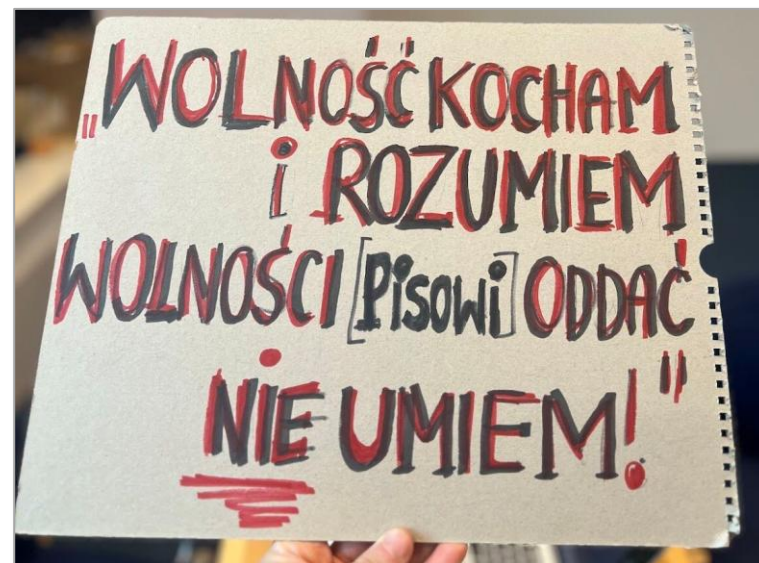 „WOLNOŚĆ KOCHAM
i ROZUMIEM
WOLNOŚCI [PiSOWi] ODDAĆ
NIE UMIEM!"